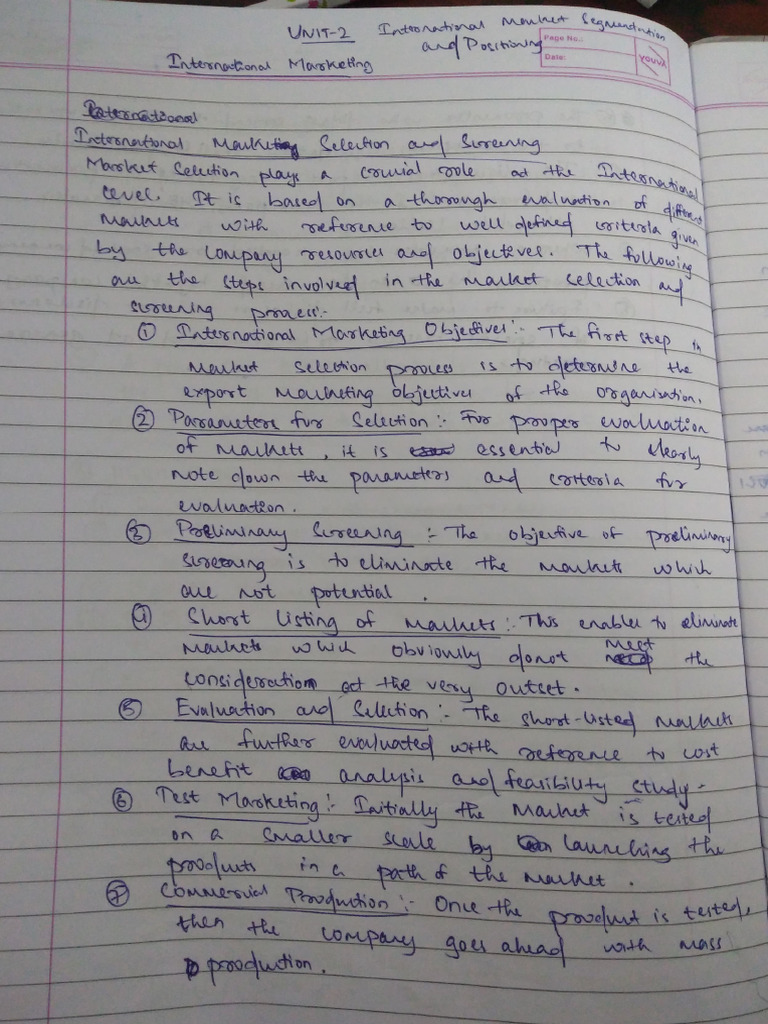 UNIT-2 International Market Segmentation
and Positioning
Page No.:
Date:
YOUVA
International Marketing
International
International Marketing Selection and Screening
Market Selection plays a crucial role at the International
level. It is based on a thorough evaluation of different
markets with reference to well defined criteria given
by the company resources and objectives. The following
are the steps involved in the market selection and
screening process:-
① International Marketing Objectives:- The first step in
market selection process is to determine the
export marketing objectives of the organisation.
② Parameters for Selection:- For proper evaluation
of markets, it is essential to clearly
note down the parameters and criteria for
evaluation.
③ Preliminary Screening:- The objective of preliminary
screening is to eliminate the markets which
are not potential.
④ Short listing of markets:- This enables to eliminate
markets which obviously donot meet the
consideration at the very outset.
⑤ Evaluation and Selection:- The short-listed markets
are further evaluated with reference to cost
benefit analysis and feasibility study.
⑥ Test Marketing:- Initially the market is tested
on a smaller scale by launching the
products in a path of the market.
⑦ Commercial Production:- Once the product is tested,
then the company goes ahead with mass
production.